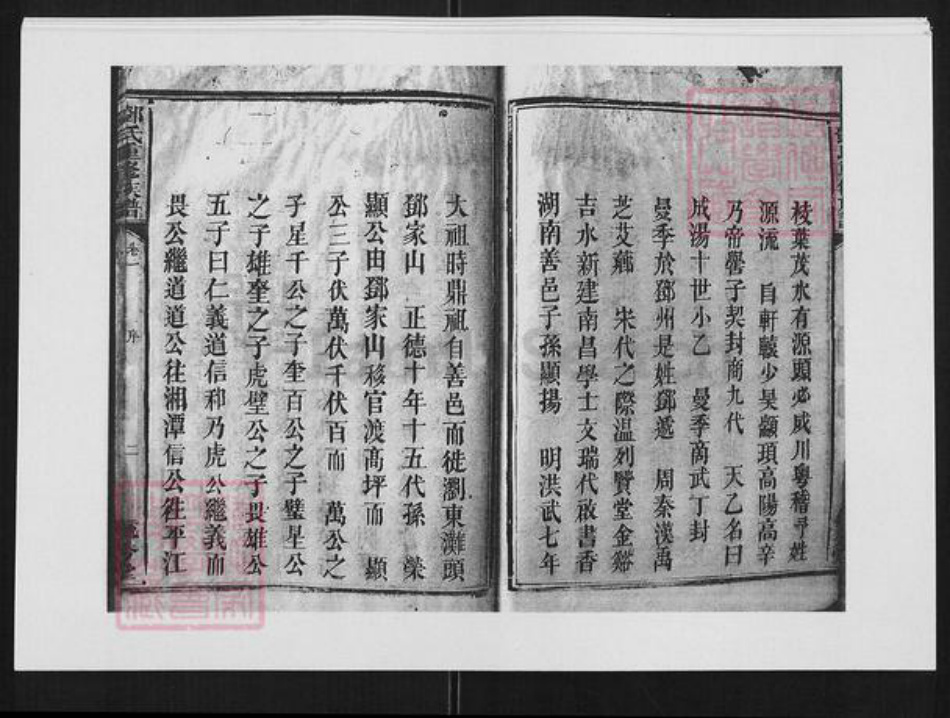 枝葉茂水有源頭必咸川粵稽尋姓
源流　自軒轅少昊顓頊高陽高辛
乃帝嚳子契封商九代　天乙名曰
成湯十世小乙　曼季商武丁封
曼季於鄧州是姓鄧遞　周秦漢禹
芝艾蘓　宋代之際温列賢堂金谿
吉水新建南昌學士文瑞代啟書香
湖南善邑子孫顯揚　明洪武七年
大祖時鼎祖自善邑而徙瀏東灘頭
鄧家山　正德十年十五代孫　榮
顯公由鄧家山移官渡髙坪而　顯
公三子伏萬伏千伏百而　萬公之
子星千公之子奎百公之子璧星公
之子雄奎之子虎壁公之子畏雄公
五子曰仁義道信和乃虎公繼義而
畏公繼道道公往湘潭信公往平江
鄧氏重修族譜　卷一　序　二